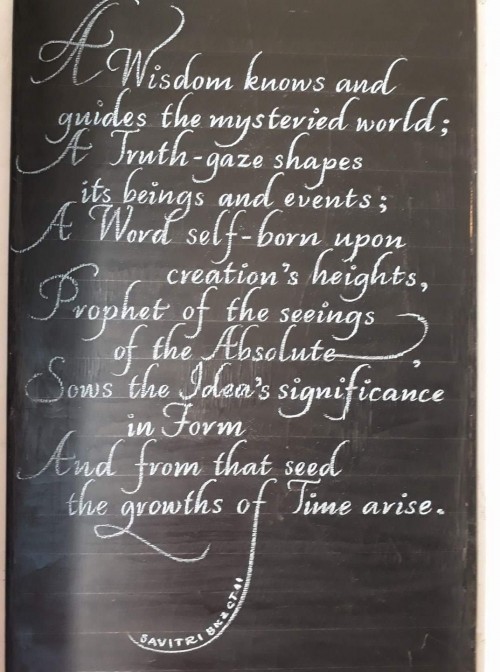 A Wisdom knows and
guides the mysteried world;
A Truth-gaze shapes
its beings and events;
A Word self-born upon
creation's heights,
Prophet of the seeings
of the Absolute,
Sows the Idea's significance
in Form
And from that seed
the growths of Time arise.
SAVITRI BK2 CT.11